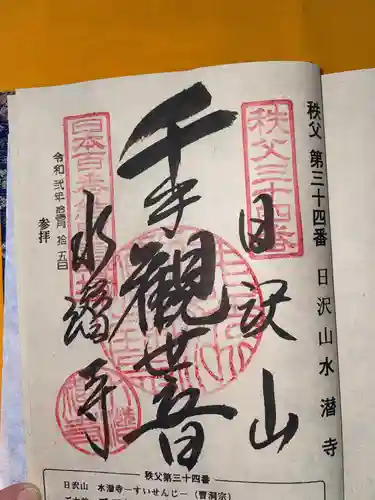 秩父 第三十四番 日沢山水潜寺
秩父三十四番
日沢山
千手観世音
日本百番結
水潜寺
令和 弐年 拾壹月 拾五日
参拝
秩父第三十四番
日沢山 水潜寺−すいせんじ−(曹洞宗)